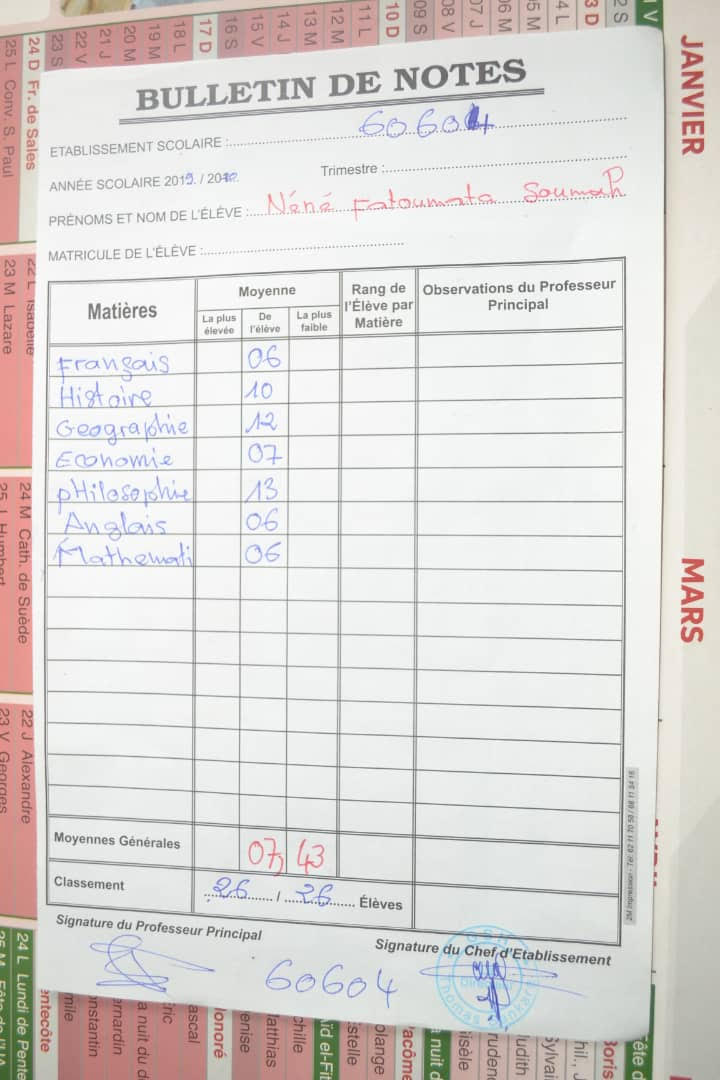 BULLETIN DE NOTES
ETABLISSEMENT SCOLAIRE : 60604
ANNÉE SCOLAIRE 2019. / 20 Trimestre :
PRÉNOMS ET NOM DE L'ÉLÈVE : Néné Fatoumata Soumah
MATRICULE DE L'ÉLÈVE :
Matières Moyenne Rang de l'Élève par Matière Observations du Professeur Principal
La plus élevée De l'élève La plus faible
Français 06
Histoire 10
Geographie 12
Economie 07
pHilosophie 13
Anglais 06
Mathemati 06
Moyennes Générales 07,43
Classement 26 / 26 Élèves
Signature du Professeur Principal Signature du Chef d'Etablissement
60604
JANVIER
MARS
24 D Fr. de Sales
25 L Conv. S. Paul
23 M Lazare
24 M Cath. de Suède
22 J Alexandre
23 V Georges
24 L Lundi de Pente
23 S
22 V
21 J
20 M
19 M
18 L
17 D
16 S
15 V
14 J
13 M
12 M
11 L
10 D
09 S
08 V